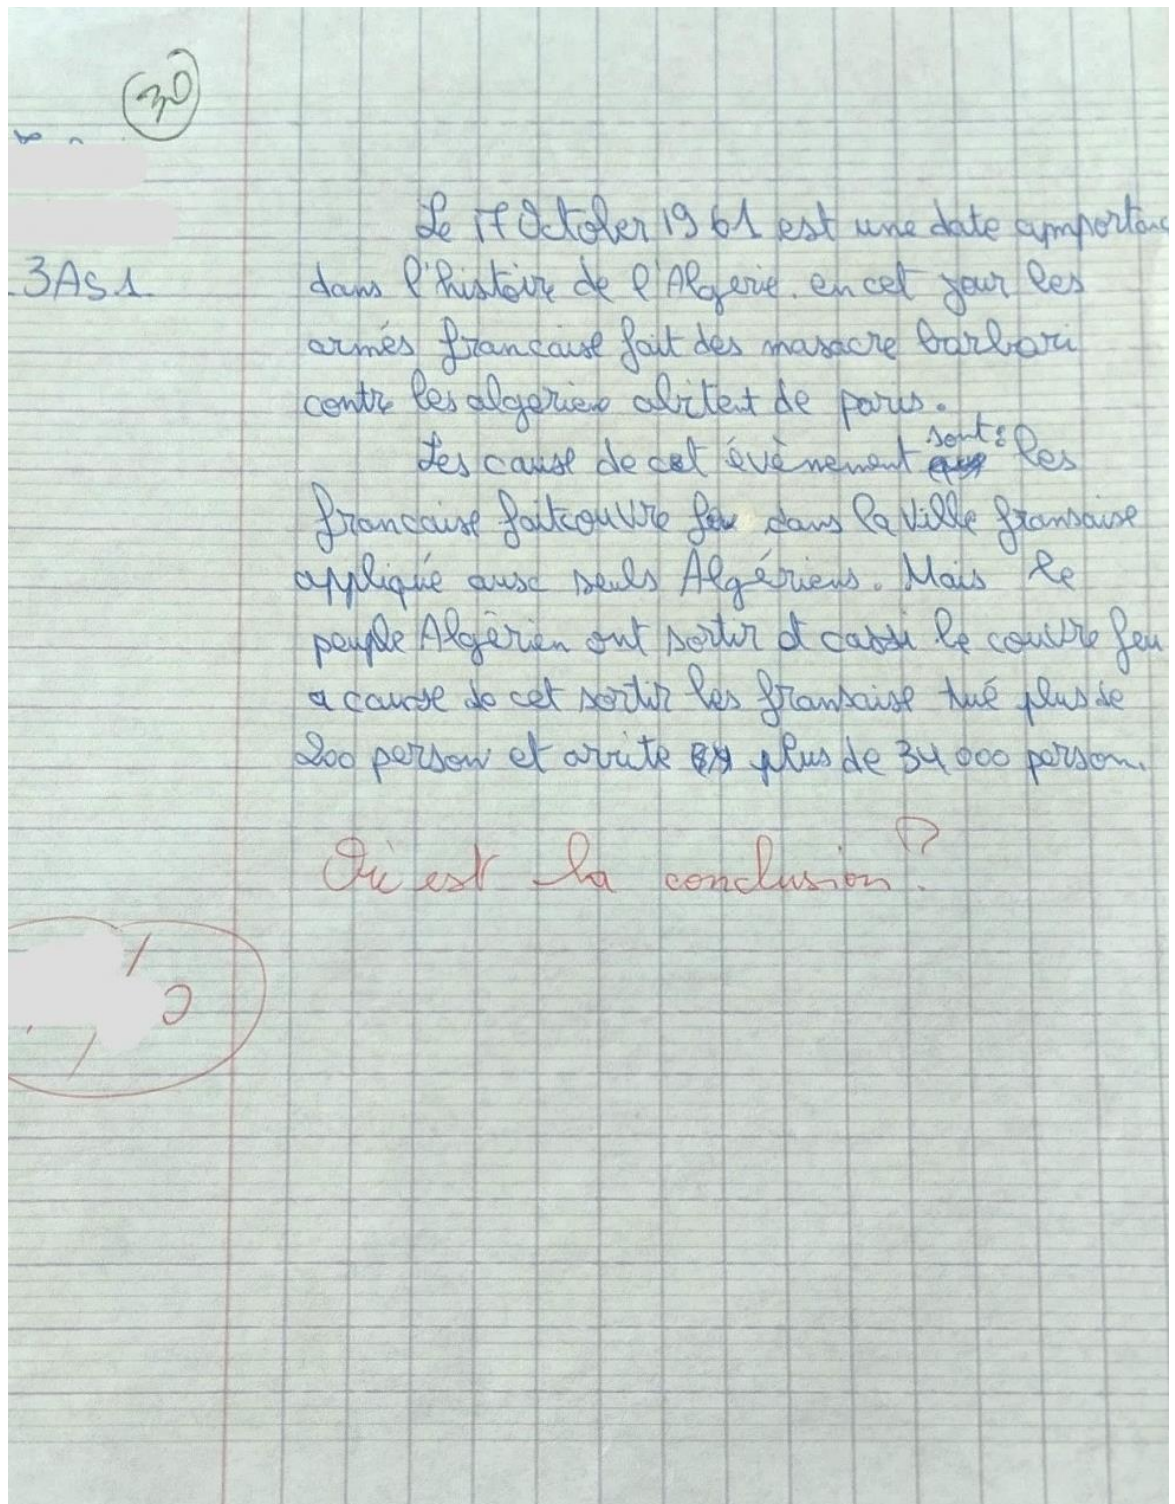 30
Le 17 October 1961 est une date amportan
3AS1. dans l'histoire de l'Algerie. en cet jour les
armés francaise fait des masacre barbari
contre les algerien abitent de paris.
Les cause de cet évènement sont: les
francaise fait couvre feu dans la ville fransaise
appliqué aux seuls Algériens. Mais le
peuple Algérien ont sortir et cassi le couvre feu
a cause de cet sortir les fransaise tué plus de
200 person et arrite plus de 34 000 person.
Où est la conclusion ?